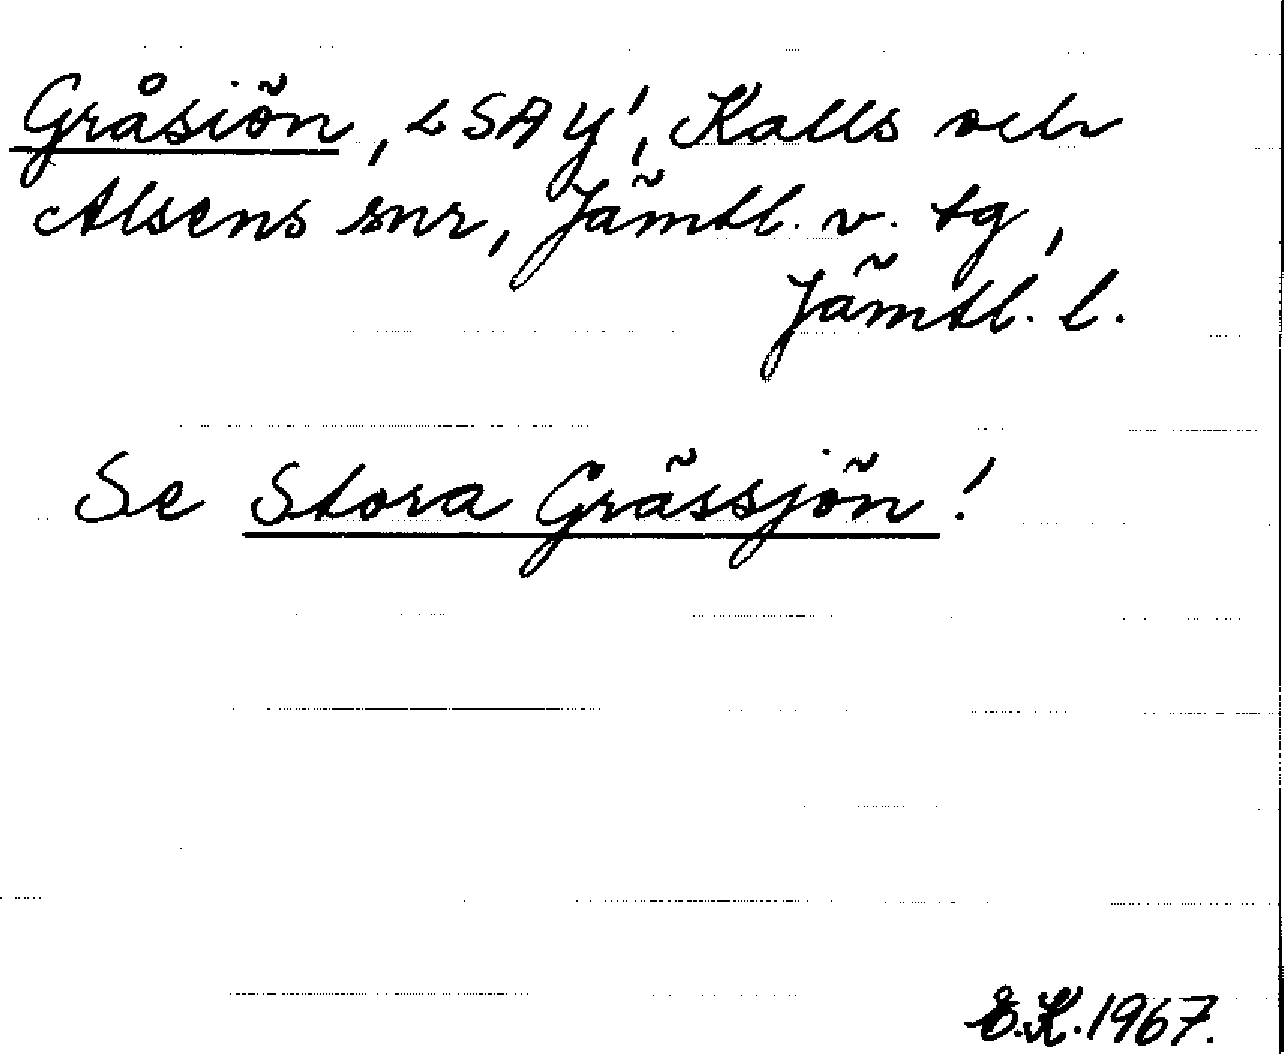 Gråsiön, < SAY!, Kalls och
Alsens snr, Jämtl. v. tg,
Jämtl. l.
Se Stora Grässjön!
E.K. 1967.